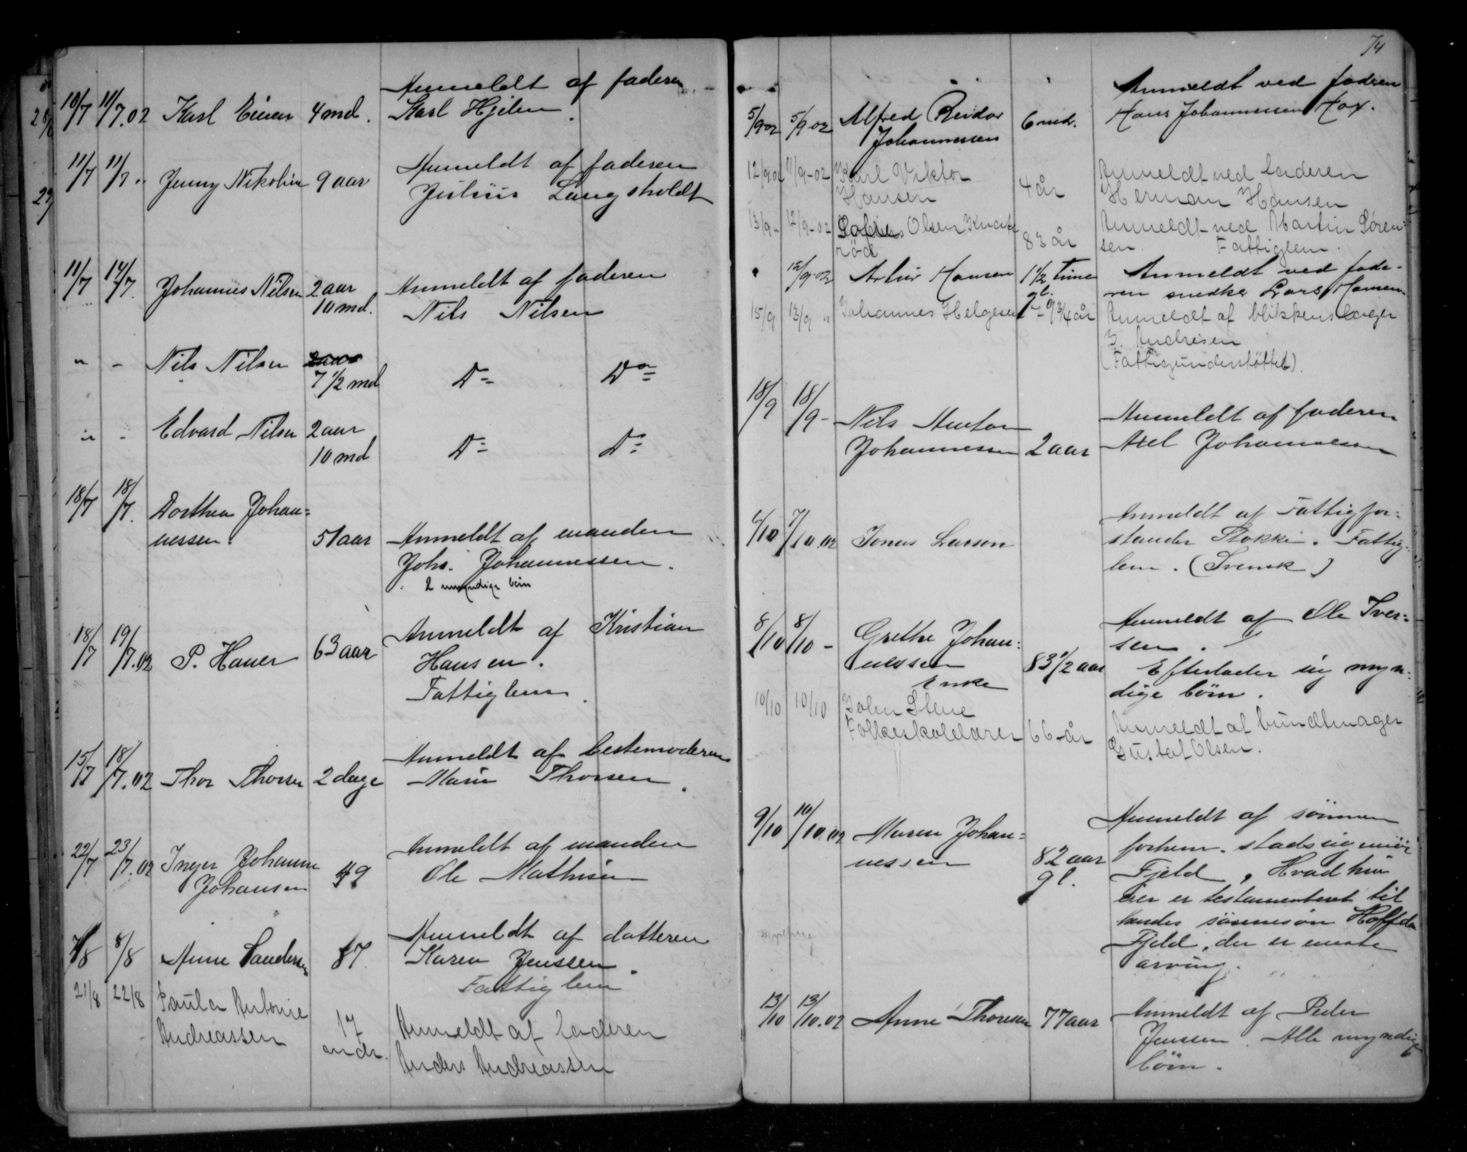 Anmeldt af faderen
10/7 11/7.02 Karl Einar 4 md. Karl Hjelm.
11/7 11/7 " Jenny Nikoline 9 aar Anmeldt af faderen
Julius Langsholdt
11/7 14/7. Johannes Nilsen 2 aar Anmeldt af faderen
10 md. Nils Nilsen
" - Nils Nilsen
7 1/2 md Do Do
" - Edvard Nilsen 2 aar
10 md Do Do
18/7 18/7. Dorthea Johan=
nessen. 51 aar Anmeldt af manden
Johs. Johannessen.
2 umyndige børn
18/7 19/7.02 P. Hauer 63 aar Anmeldt af Kristian
Hansen.
Fattiglem.
15/7 18/7.02 Thor Thorsen 2 dage Anmeldt af bestemoderen
Marie Thorsen.
22/7 23/7.02 Inger Johanne Anmeldt af manden
Johansen 49 Ole Mathisen
7/8 8/8 Anne Sandersen 87. Anmeldt af datteren
Karen Jenssen.
Fattiglem
21/8 22/8 Paula Antonie
Andreassen 17 Anmeldt af faderen
mdr. Anders Andreassen
74
Anmeldt ved faderen
5/9 02 5/9 02 Alfred Reidar 6 md. Hans Johannessen Hox.
Johannessen
12/9 02 11/9-02 Karl Viktor Anmeldt ved faderen
Hansen 4 år Herman Hansen
13/9 - 12/9-02 Olsen Knatte Anmeldt ved Martin Søren-
rød 83 år sen. Fattiglem.
12/9 02 Arthur Hansen 1 1/2 time Anmeldt ved fade-
gl. ren snedker Lars Hansen.
15/9 13/9 " Johannes Helgesen 9 3/4 år Anmeldt af blikkenslager
Andresen
(Fattigunderstøttet).
18/9 18/9 - Nils Anton Anmeldt af faderen
Johannessen 2 aar Axel Johannessen
6/10 7/10.02 Jonas Larson Anmeldt af Fattigfor=
stander Stokke. Fattig=
lem. (Svensk)
8/10 8/10 - Grethe Johan= Anmeldt af Ole Iver=
nessen 83 1/2 aar sen.
Enke Efterlader sig myn=
dige børn.
10/10 10/10 John Stene
Folkeskolelærer 66 år Anmeldt af bundtmager
Gustaf Olsen.
9/10 10/10.02 Maren Johan= Anmeldt af sønnen
nessen 82 aar forhenv. stadsingeniør
gl. Fjeld, Hvad hun
eier er testamenteret til
hendes sønnesøn
Fjeld, der er eneste
arving.
13/10 13/10.02 Anne Thoresen 77 aar Anmeldt af Peder
Jenssen. Alle myndige
børn.